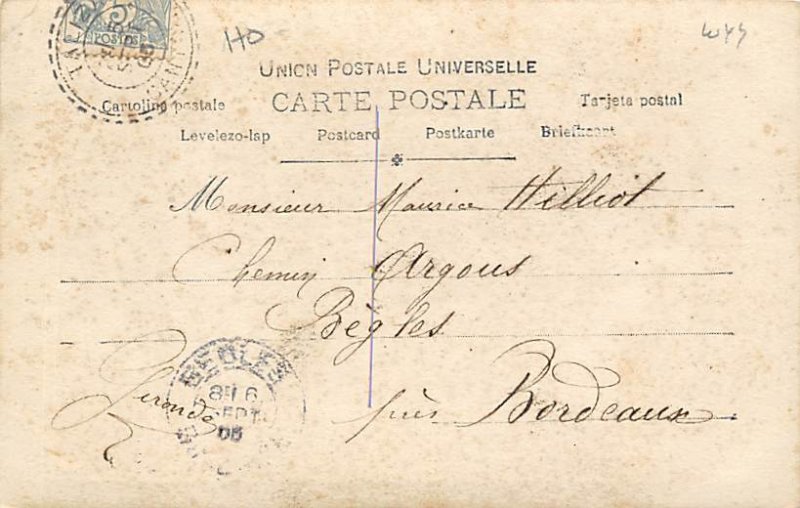 5
POSTES
HO
UNION POSTALE UNIVERSELLE
CARTE POSTALE
Cartolina postale
Tarjeta postal
Levelezo-lap Postcard Postkarte Briefkaart
Monsieur Maurice Williot
Chemin Argous
Bègles
près Bordeaux
Gironde
BEGLES
8H 6
SEPT
05